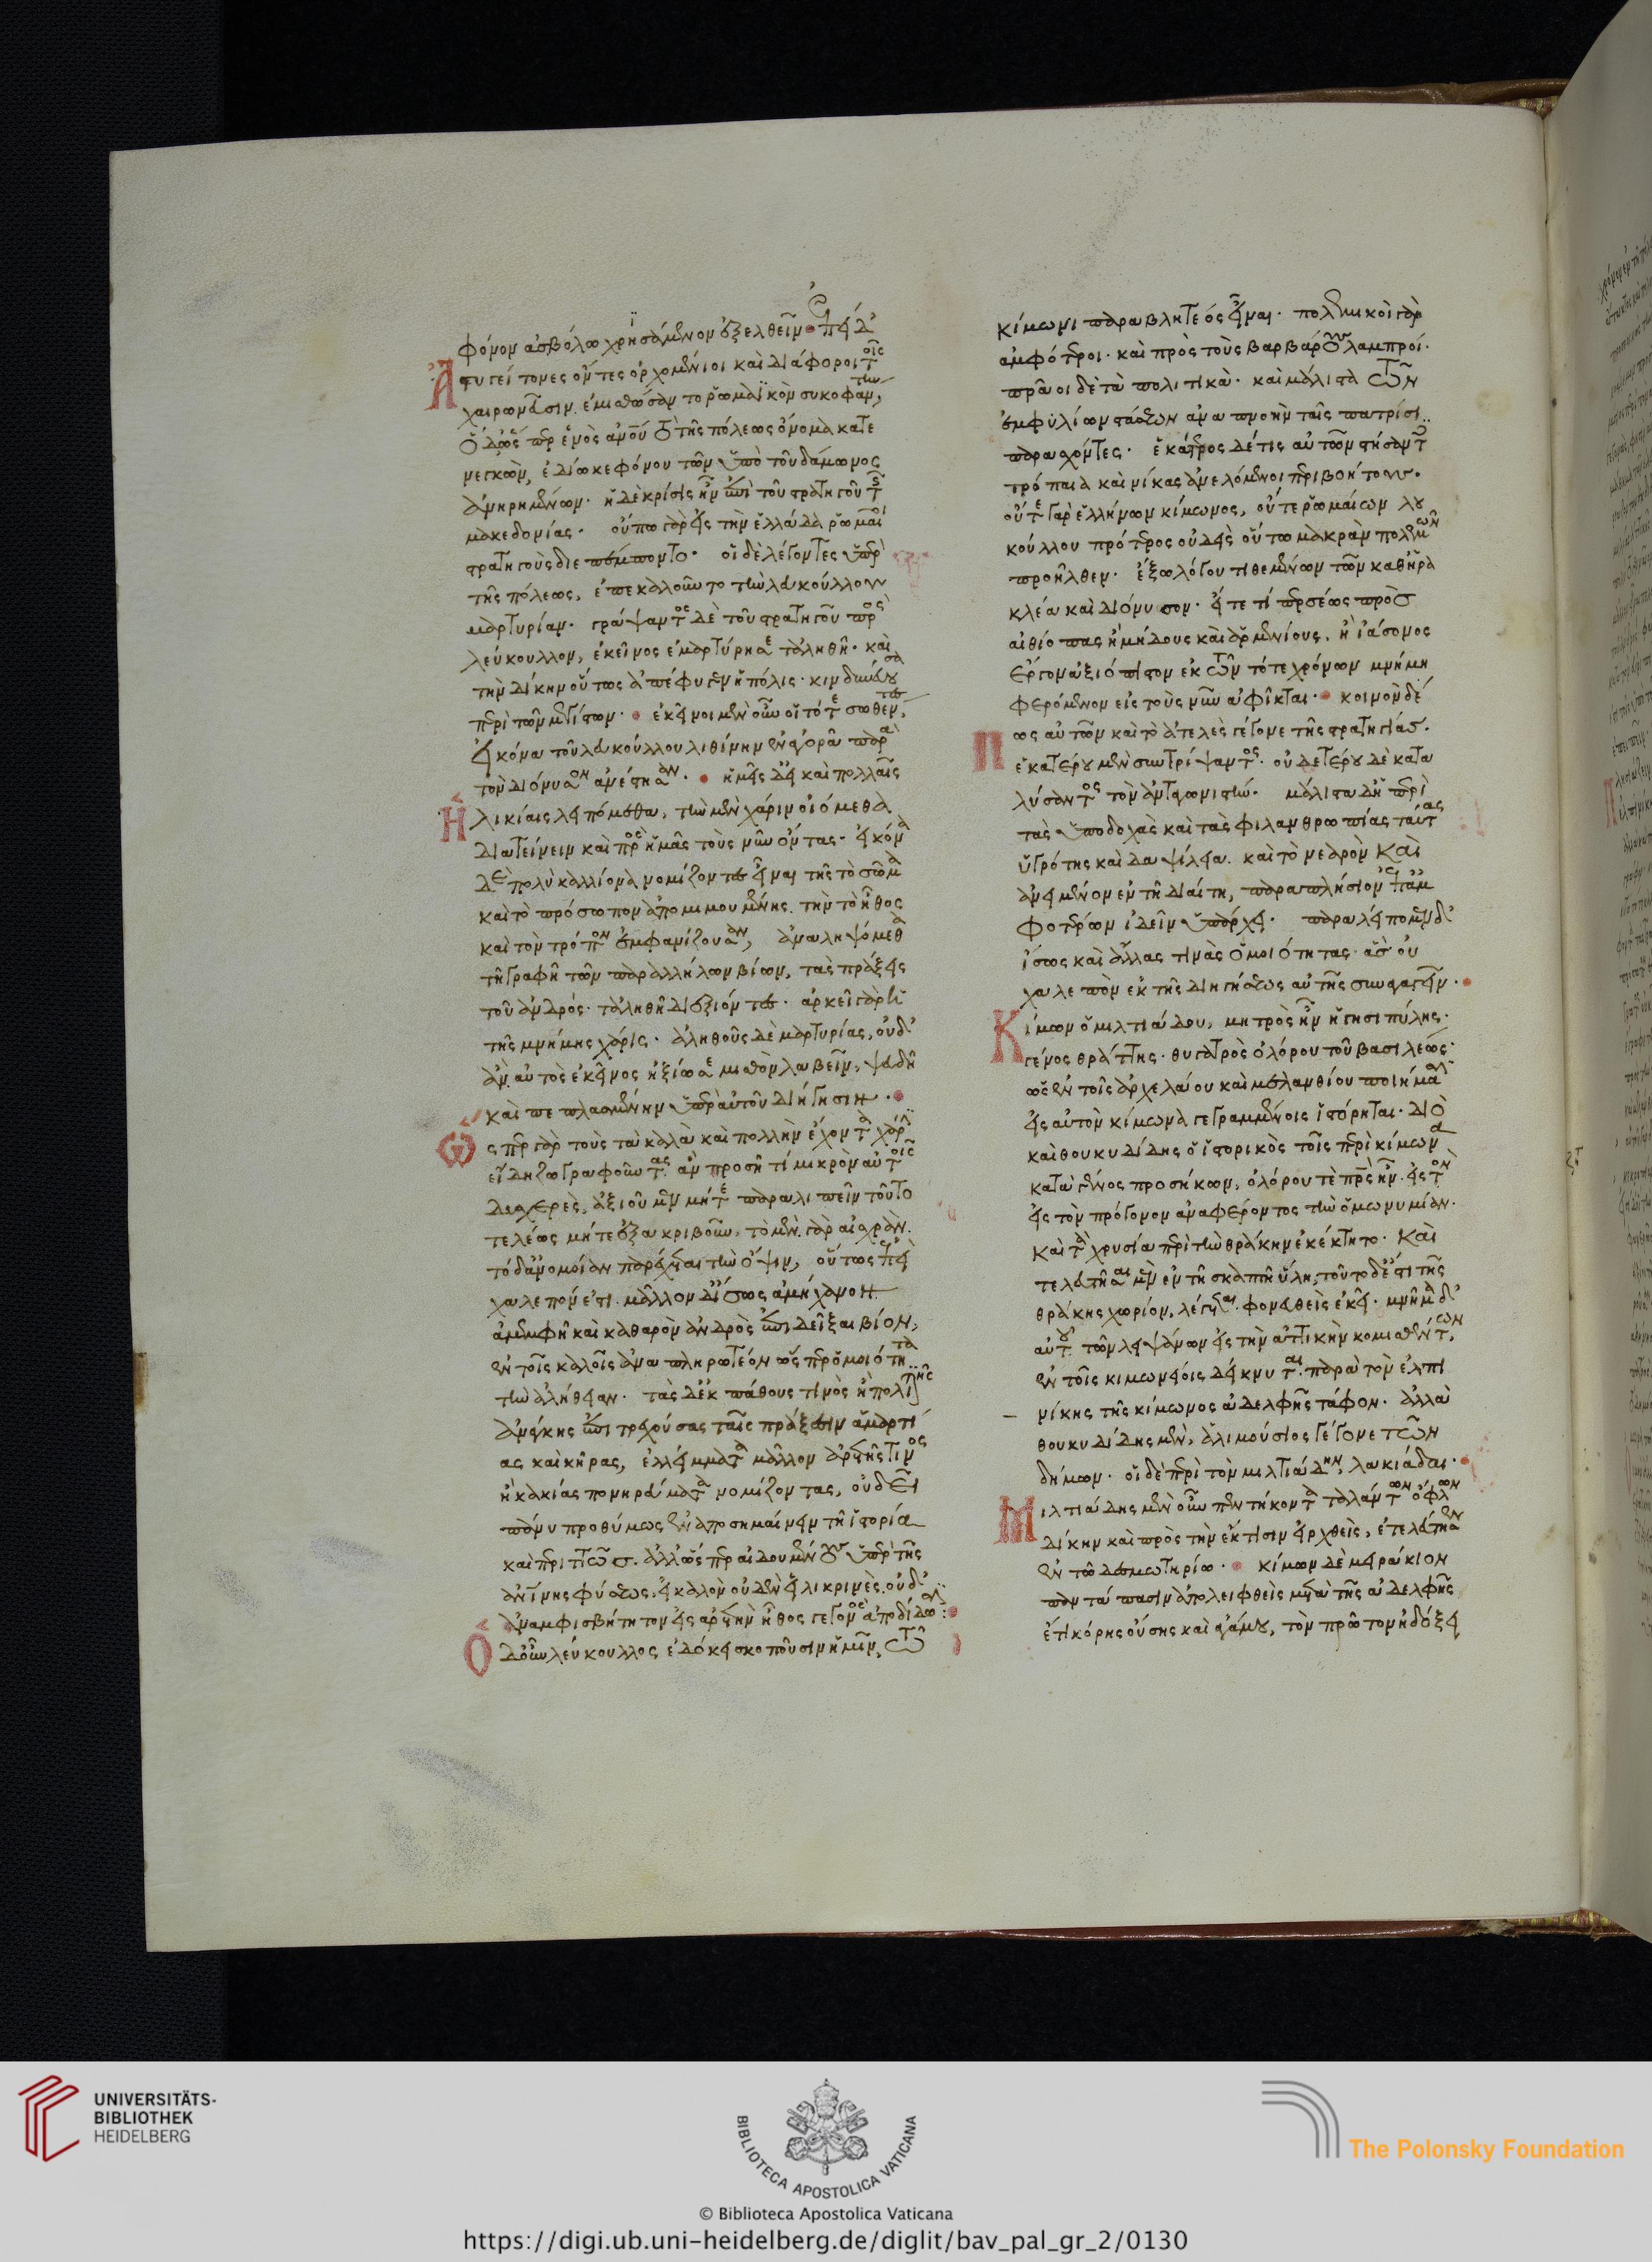 φόνον ἀσβόλω χρησάμενον ἐξελθεῖν· ἐπεὶ δ'
Ἀστυγείτονες ὄντες ὀρχομένιοι καὶ διάφοροι τοῖς
χαιρωνεῦσιν ἐμισθώσαντο ῥωμαϊκὸν συκοφάντην,
ὁ δ' ὥσπερ ἑνὸς ἀνθρώπου τὸ τῆς πόλεως ὄνομα κατε
νεγκὼν, ἐδίωκε φόνου τῶν ὑπὸ τοῦ δάμωνος
ἀνηρημένων· ἡ δὲ κρίσις ἦν ἐπὶ τοῦ στρατηγοῦ τῆς
μακεδονίας· οὔπω γὰρ εἰς τὴν ἑλλάδα ῥωμαῖοι
στρατηγοὺς διεπέμποντο· οἱ δὲ λέγοντες ὑπὲρ
τῆς πόλεως, ἐπεκαλοῦντο τὴν λευκούλλου
μαρτυρίαν· γράψαντος δὲ τοῦ στρατηγοῦ πρὸς
λεύκουλλον, ἐκεῖνος ἐμαρτύρησε τἀληθῆ· καὶ
τὴν δίκην οὕτως ἀπέφυγεν ἡ πόλις· κινδυνεύουσα
περὶ τῶν μεγίστων· ἐκεῖνοι μὲν οὖν οἱ τότε σωθέντες,
εἰκόνα τοῦ λευκούλλου λιθίνην ἐν ἀγορᾶ παρὰ
τὸν διόνυσον ἀνέστησαν· ἡμεῖς δ' εἰ καὶ πολλαῖς
Ἡλικίαις λειπόμεθα, τὴν μὲν χάριν οἰόμεθα
διατείνειν καὶ πρὸς ἡμᾶς τοὺς νῦν ὄντας· εἰκόνα
δὲ πολὺ καλλίονα νομίζοντες εἶναι τῆς τὸ σῶμα
καὶ τὸ πρόσωπον ἀπομιμουμένης· τὴν τὸ ἦθος
καὶ τὸν τρόπον ἐμφανίζουσαν, ἀναληψόμεθα
τῆ γραφῆ τῶν παραλλήλων βίων, τὰς πράξεις
τοῦ ἀνδρός· τἀληθῆ διεξιόντες· ἀρκεῖ γὰρ ἡ
τῆς μνήμης χάρις· ἀληθοῦς δὲ μαρτυρίας, οὐδ'
ἂν αὐτὸς ἐκεῖνος ἠξίωσε μισθὸν λαβεῖν, ψευδῆ
καὶ πεπλασμένην ὑπὲρ αὐτοῦ διήγησιν·
Ὥσπερ γὰρ τοὺς τὰ καλὰ καὶ πολλὴν ἔχοντα χάριν
εἴδη ζωγραφοῦντας ἂν προσῆ τι μικρὸν αὐτοῖς
δυσχερὲς, ἀξιοῦμεν μήτε παραλιπεῖν τοῦτο
τελέως μήτε ἐξακριβοῦν, τὸ μὲν γὰρ αἰσχρὰν.
τὸ δ' ἀνομοίαν παρέχεται τὴν ὄψιν, οὕτως ἐπεὶ
χαλεπόν ἐστι· μᾶλλον δ' ἴσως ἀμήχανον
ἀμεμφῆ καὶ καθαρὸν ἀνδρὸς ἐπιδεῖξαι βίον,
ἐν τοῖς καλοῖς ἀναπληρωτέον ὥσπερ ὁμοιότητα
τὴν ἀλήθειαν· τὰς δ' ἐκ πάθους τινὸς ἢ πολιτικῆς
ἀνάγκης ἐπιτρεχούσας ταῖς πράξεσιν ἁμαρτί
ας καὶ κῆρας, ἐλλείμματα μᾶλλον ἀρετῆς τινος
ἢ κακίας πονηρεύματα νομίζοντας, οὐ δεῖ
πάνυ προθύμως ἐναποσημαίνειν τῆ ἱστορία
καὶ περιττῶς. ἀλλ' ὥσπερ αἰδουμένους ὑπὲρ τῆς
ἀνθρωπίνης φύσεως, εἰ καλὸν οὐδὲν εἰλικρινὲς οὐδ'
ἀναμφισβήτητον εἰς ἀρετὴν ἦθος γεγονὸς ἀποδίδωσιν:
Ὁ δ' οὖν λεύκουλλος ἐδόκει σκοποῦσιν ἡμῖν, τῶ
κίμωνι παραβλητέος εἶναι· πολεμικοὶ γὰρ
ἀμφότεροι· καὶ πρὸς τοὺς βαρβάρους λαμπροί·
πρᾶοι δὲ τὰ πολιτικὰ· καὶ μάλιστα τῶν
ἐμφυλίων στάσεων ἀναπνοὴν ταῖς πατρίσι
παρασχόντες· ἑκάτερος δέ τις αὐτῶν στήσαντο
τρόπαια καὶ νίκας ἀνελόμενοι περιβοήτους·
οὔτε γὰρ ἑλλήνων κίμωνος, οὔτε ῥωμαίων λευ
κούλλου πρότερος οὐδεὶς οὕτω μακρὰν πολεμῶν
προῆλθεν· ἔξω λόγου τιθεμένων τῶν καθ' ἡρα
κλέα καὶ διόνυσον· εἴ τέ τι περσέως πρὸς
αἰθίοπας ἢ μήδους καὶ ἀρμενίους, ἢ ἰάσονος
ἔργον ἀξιόπιστον ἐκ τῶν τότε χρόνων μνήμη
φερόμενον εἰς τοὺς νῦν ἀφῖκται· κοινὸν δέ
Πως αὐτῶν καὶ τὸ ἀτελὲς γέγονε τῆς στρατηγίας·
ἑκατέρου μὲν συντρίψαντος· οὐδετέρου δὲ κατα
λύσαντος τὸν ἀνταγωνιστήν· μάλιστα δ' ἡ περὶ
τὰς ὑποδοχὰς καὶ τὰς φιλανθρωπίας ταύτας
ὑγρότης καὶ δαψίλεια· καὶ τὸ νεαρὸν καὶ
ἀνειμένον ἐν τῆ διαίτη, παραπλήσιον ἐπ' ἀμ
φοτέρων ἰδεῖν ὑπάρχει· παραλείπομεν δ'
ἴσως καὶ ἄλλας τινὰς ὁμοιότητας· ἃς οὐ
χαλεπὸν ἐκ τῆς διηγήσεως αὐτῆς συναγαγεῖν·
Κίμων ὁ μιλτιάδου, μητρὸς ἦν ἡγησιπύλης·
γένος θράττης· θυγατρὸς ὀλόρου τοῦ βασιλέως·
ὡς ἐν τοῖς ἀρχελάου καὶ μελανθίου ποιήμασιν
εἰς αὐτὸν κίμωνα γεγραμμένοις ἱστόρηται· διὸ
καὶ θουκυδίδης ὁ ἱστορικὸς τοῖς περὶ κίμωνα
κατὰ γένος προσήκων, ὀλόρου τε πατρὸς ἦν· εἰς τὸν
εἰς τὸν πρόγονον ἀναφέροντος τὴν ὁμωνυμίαν·
καὶ τὰ χρυσία περὶ τὴν θράκην ἐκέκτητο· καὶ
τελευτῆσαι μὲν ἐν τῆ σκαπτῆ ὕλη, τοῦτο δ' ἐστὶ τῆς
θράκης χωρίον, λέγεται φονευθεὶς ἐκεῖ· μνῆμα δ'
αὐτοῦ τῶν λειψάνων εἰς τὴν ἀττικὴν κομισθέντων,
ἐν τοῖς κιμωνείοις δείκνυται παρὰ τὸν ἐλπι
νίκης τῆς κίμωνος ἀδελφῆς τάφον· ἀλλὰ
θουκυδίδης μὲν, ἁλιμούσιος γέγονε τῶν
δήμων· οἱ δὲ περὶ τὸν μιλτιάδην, λακιάδαι·
Μιλτιάδης μὲν οὖν πεντήκοντα ταλάντων ὀφλὼν
δίκην καὶ πρὸς τὴν ἔκτισιν εἱρχθεὶς, ἐτελεύτησεν
ἐν τῶ δεσμωτηρίω· κίμων δὲ μειράκιον
παντάπασιν ἀπολειφθεὶς μετὰ τῆς ἀδελφῆς
ἔτι κόρης οὔσης καὶ ἀγάμου, τὸν πρῶτον ἠδόξει
UNIVERSITÄTS-
BIBLIOTHEK
HEIDELBERG
BIBLIOTECA APOSTOLICA VATICANA
The Polonsky Foundation
© Biblioteca Apostolica Vaticana
https://digi.ub.uni-heidelberg.de/diglit/bav_pal_gr_2/0130